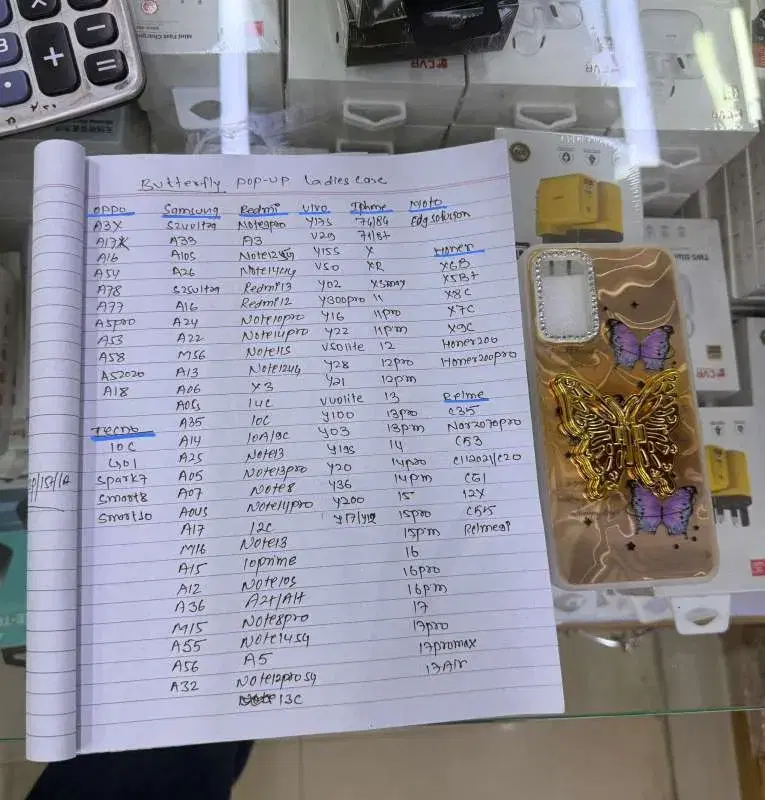 Butterfly pop-up Ladies case
OPPO
A3X
A17K
A16
A54
A78
A77
A5pro
A53
A58
A52020
A18
Tecno
10C
Spark7
Smart8
Smart10
Samsung
S24ultra
A33
A10s
A26
S25ultra
A16
A24
A22
M56
A13
A06
A05s
A35
A14
A25
A05
A07
A04s
A17
M16
A15
A12
A36
M15
A55
A56
A32
Redmi
Note9pro
A3
Note12 4g
Note14 4g
Redmi13
Redmi12
Note10pro
Note14pro
Note11s
Note12 4g
X3
14C
10C
10A/9C
Note13
Note13pro
Note8
Note14pro
12C
Note13
10prime
Note10s
A2+/A1+
Note8pro
Note14 5g
A5
Note12pro 5g
13C
Vivo
Y17s
V29
Y15S
V50
Y02
Y300pro
Y16
Y22
V50lite
Y28
Y21
V40lite
Y100
Y03
Y19s
Y20
Y36
Y200
Y17/Y12
Iphone
7G/8G
7+/8+
X
XR
XSmax
11
11pro
11pm
12
12pro
12pm
13
13pro
13pm
14
14pro
14pm
15
15pro
15pm
16
16pro
16pm
17
17pro
17promax
17Air
Moto
Edg50fusion
Honer
X6B
X5B+
X8C
X7C
X9C
Honer200
Honer200pro
Relme
C35
Narzo70pro
C53
C112021/C20
C61
12X
C55
Mini Fast Charger
CVR
CVR